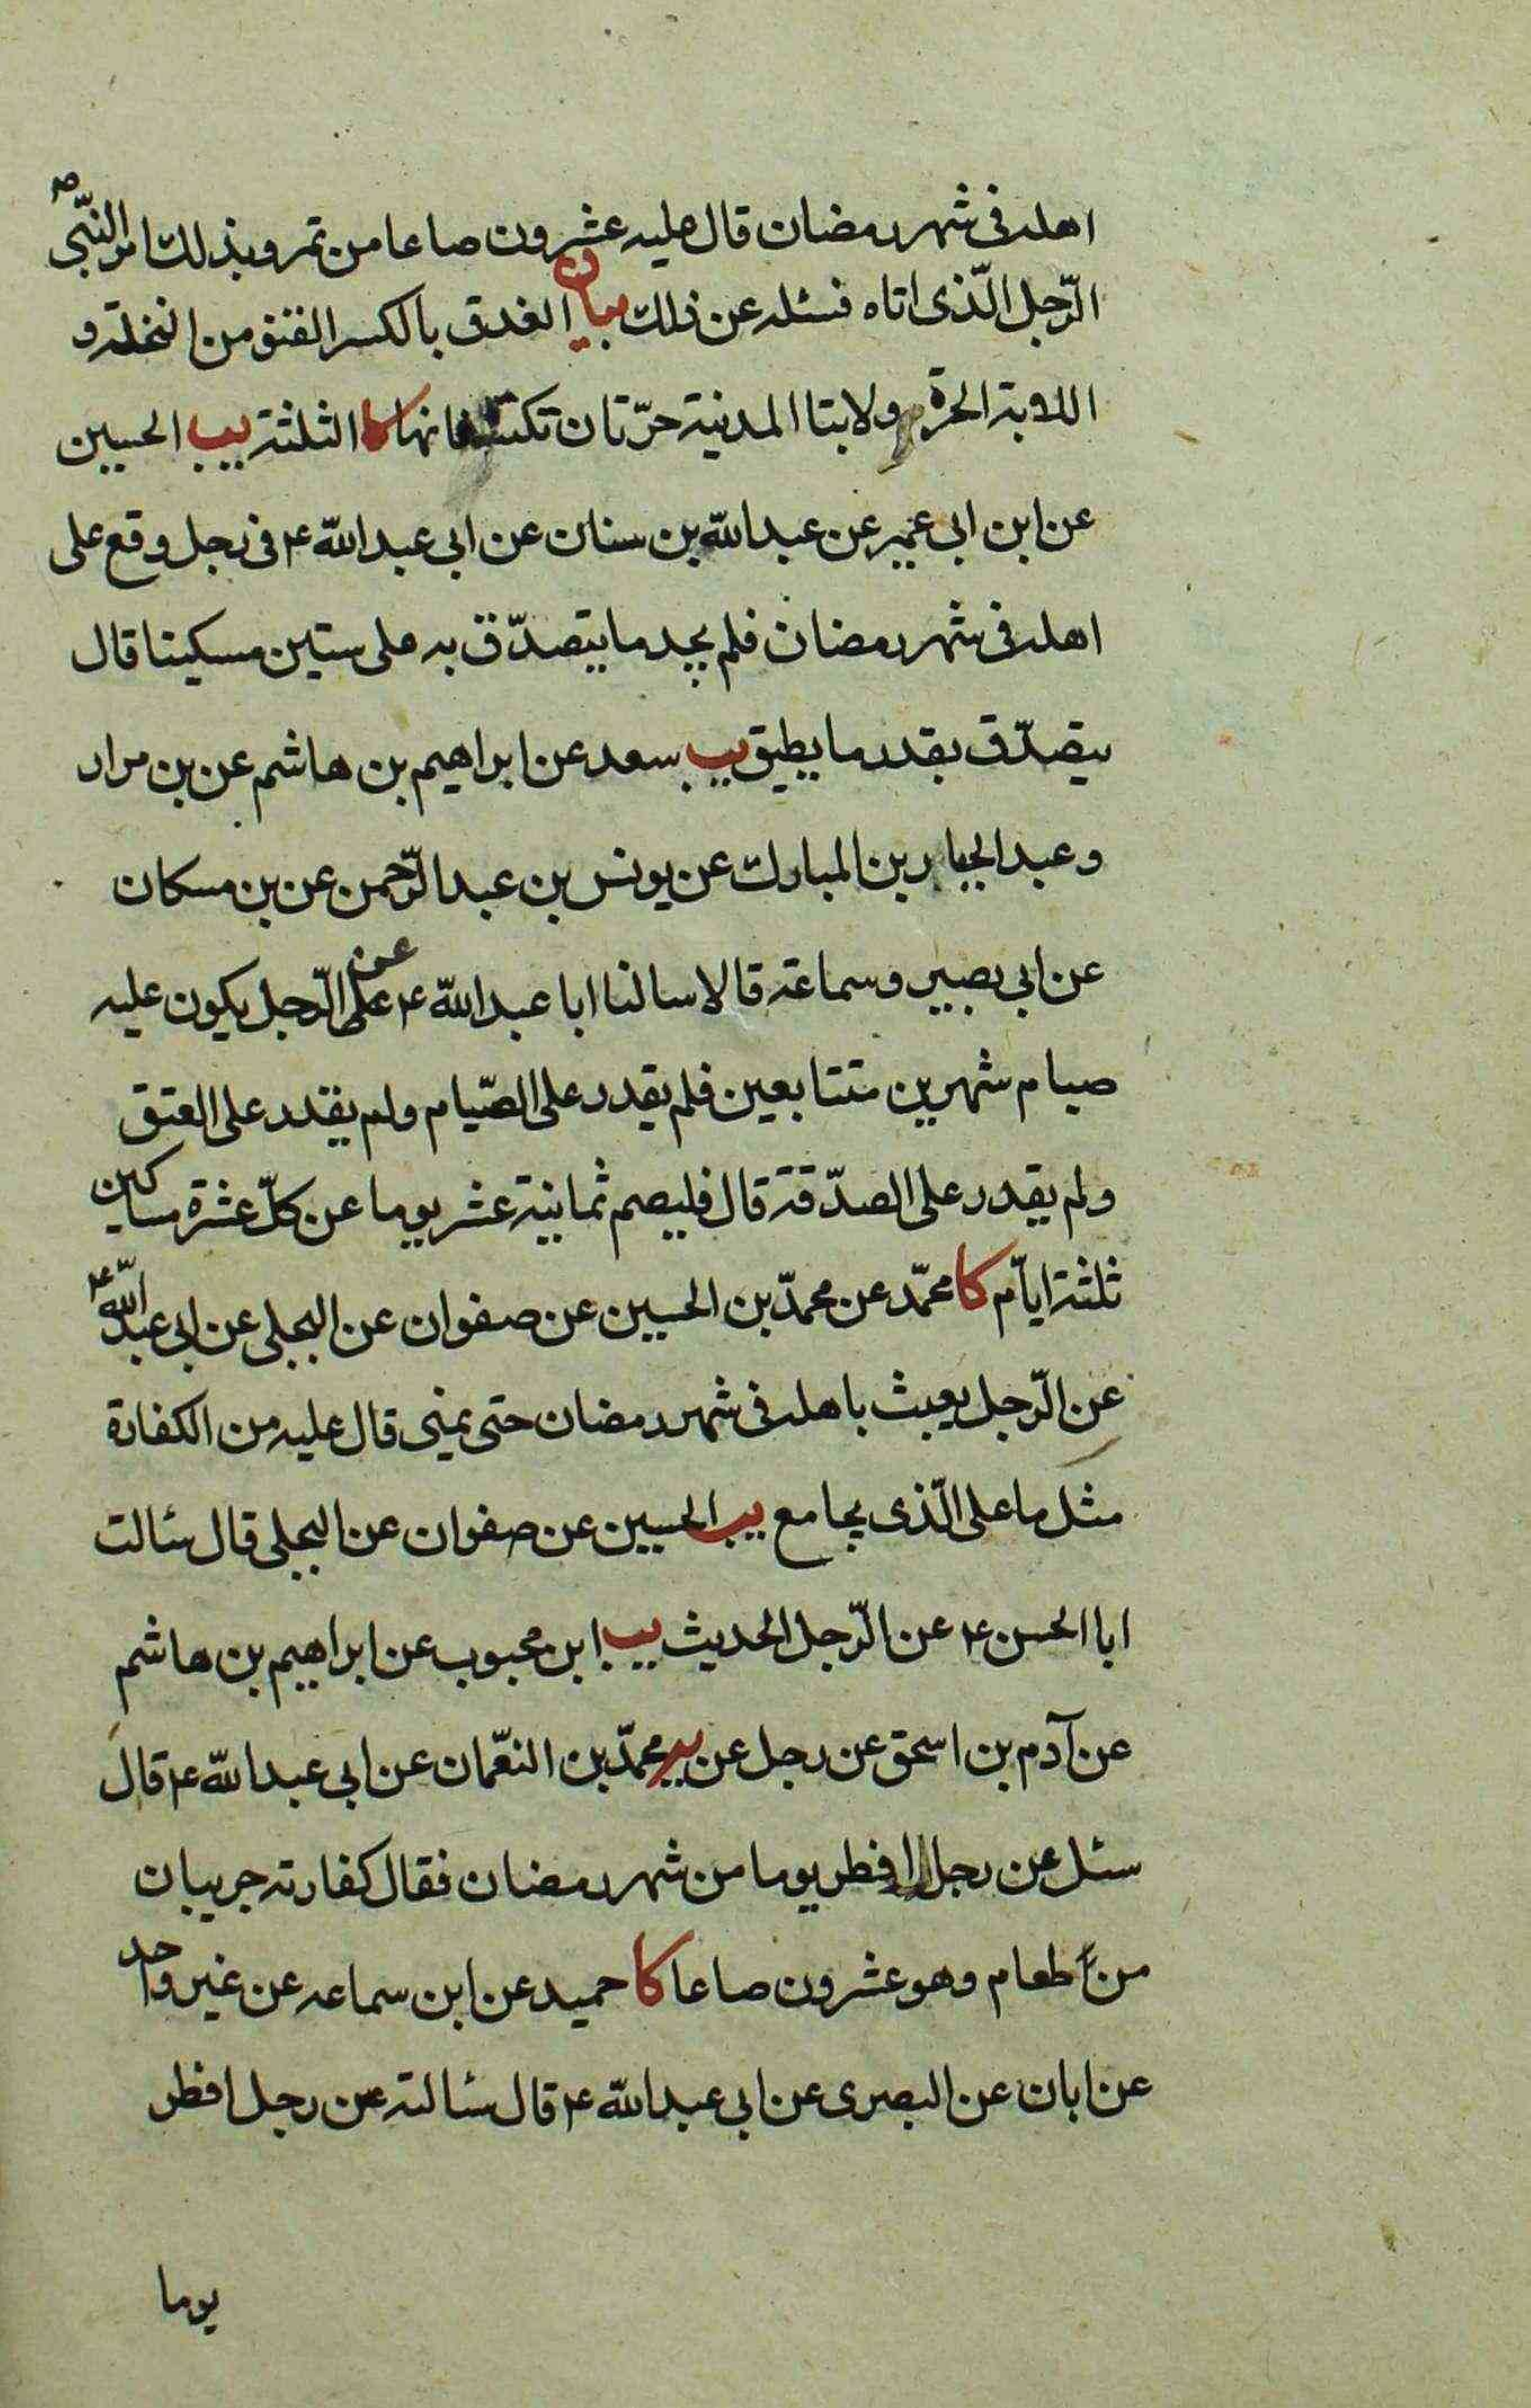 اهله فى شهر رمضان قال عليه عشرون صاعا من تمر وبذلك امر النّبى ص
الرّجل الّذى اتاه فسئله عن ذلك بيان العذق بالكسر القنو من النخلة و
اللابة الحرة ولابتا المدنية حرّتان تكتنفانها كا الثلثة يب الحسين
عن ابن ابى عمير عن عبد الله بن سنان عن ابى عبد الله ع فى رجل وقع على
اهله فى شهر رمضان فلم يجد ما يتصدّق به على ستين مسكينا قال
يتصدّق بقدر ما يطيق يب سعد عن ابراهيم بن هاشم عن بن مرار
و عبد الجبار بن المبارك عن يونس بن عبد الرّحمن عن بن مسكان
عن ابى بصير وسماعة قالا سالنا ابا عبد الله ع عن الرّجل يكون عليه
صيام شهرين متتابعين فلم يقدر على الصّيام ولم يقدر على العتق
ولم يقدر على الصدّقة قال فليصم ثمانية عشر يوما عن كلّ عشرة مساكين
ثلثة ايّام كا محمّد عن محمدّ بن الحسين عن صفوان عن البجلى عن ابى عبد الله ع
عن الرّجل يعبث باهله فى شهر رمضان حتى يمنى قال عليه من الكفارة
مثل ما على الّذى يجامع يب الحسين عن صفوان عن البجلى قال سئالت
ابا الحسن ع عن الرّجل الحديث يب ابن محبوب عن ابراهيم بن هاشم
عن آدم بن اسحق عن رجل عن محمدّ بن النعّمان عن ابى عبد الله ع قال
سئل عن رجل افطر يوما من شهر رمضان فقال كفارته جريبان
من طعام وهو عشرون صاعا كا حميد عن ابن سماعه عن غير واحد
عن ابان عن البصرى عن ابى عبد الله ع قال سئالته عن رجل افطر
يوما